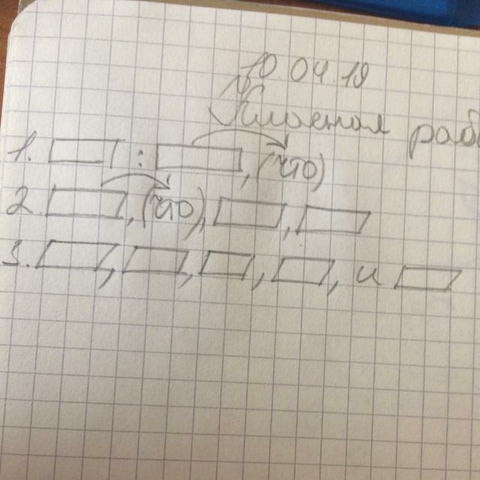 10 04 18
Классная раб
1. : , (что)
2. , (что), ,
3. , , , , и